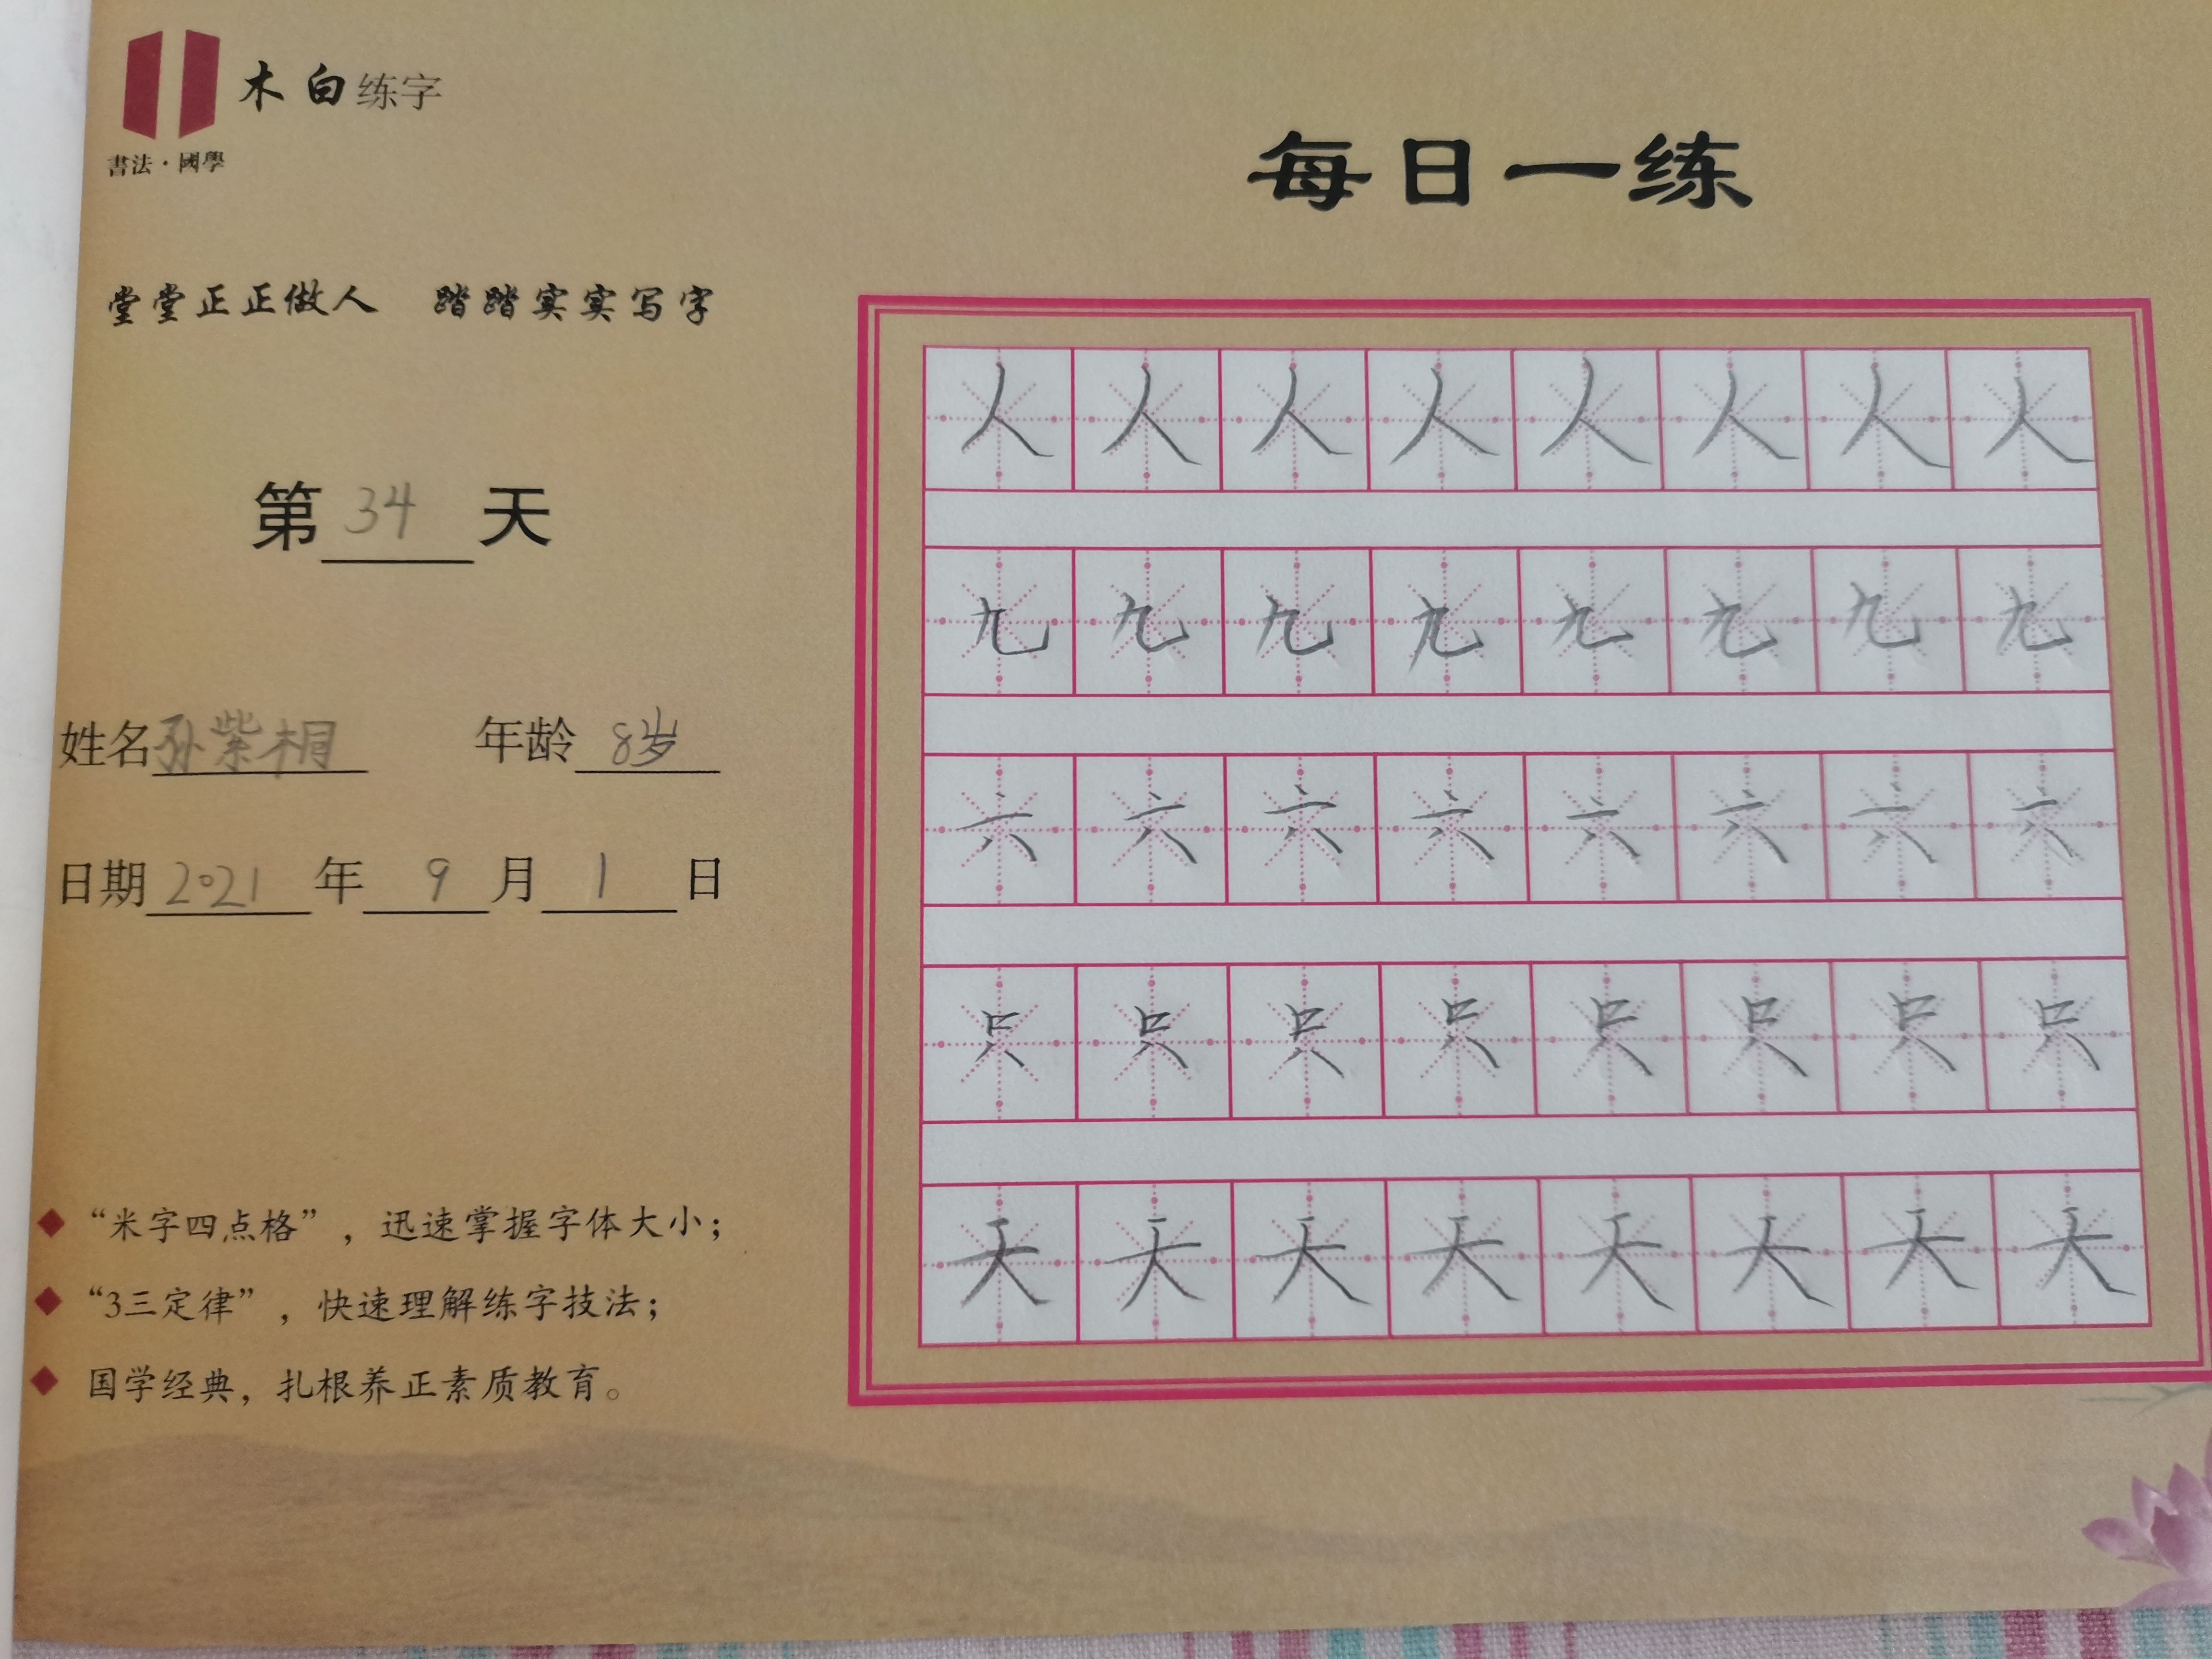 木白练字
書法·國學
每日一练
堂堂正正做人 踏踏实实写字
第 34 天
姓名 孙紫桐 年龄 8岁
日期 2021 年 9 月 1 日
“米字四点格”，迅速掌握字体大小；
“3三定律”，快速理解练字技法；
国学经典，扎根养正素质教育。
人 人 人 人 人 人 人 人
九 九 九 九 九 九 九 九
六 六 六 六 六 六 六 六
只 只 只 只 只 只 只 只
天 天 天 天 天 天 天 天